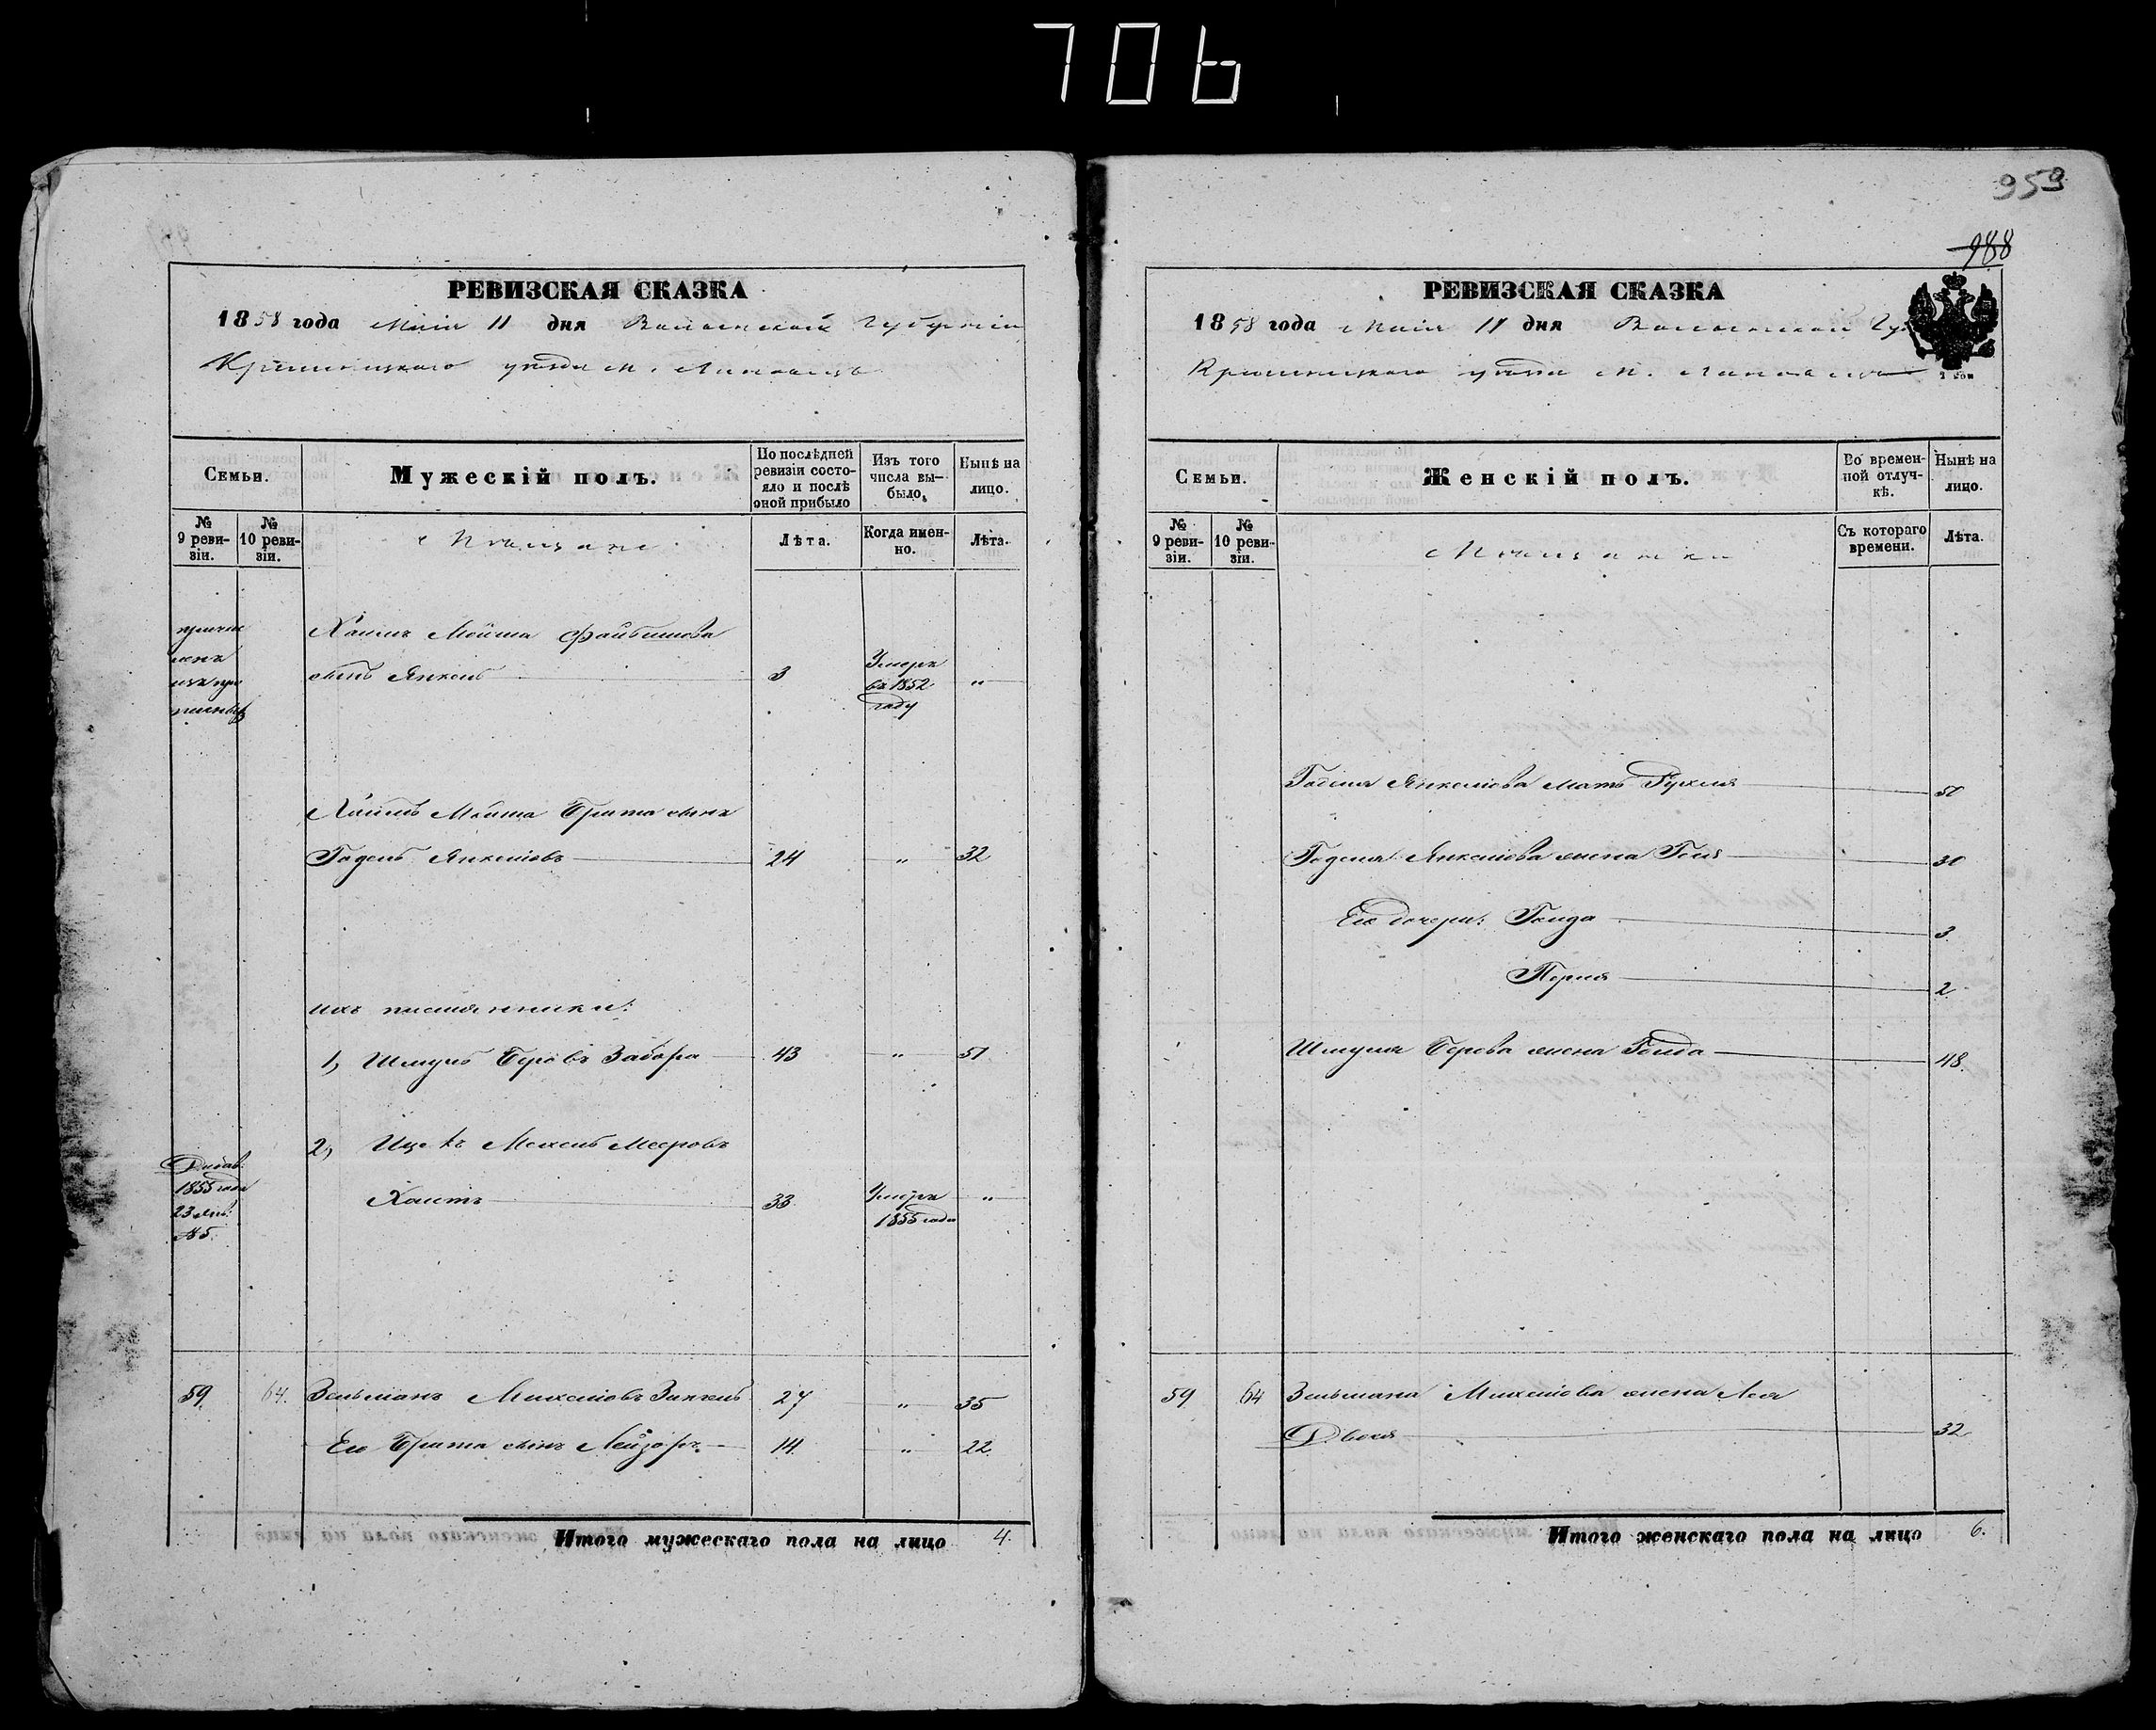 706
РЕВИЗСКАЯ СКАЗКА
1858 года Маія 11 дня Волынской Губерніи
Кременецкаго уѣзда м.
Семьи.
Мужескій полъ.
По послѣдней ревизіи состояло и послѣ оной прибыло
Изъ того числа выбыло.
Нынѣ на лицо.
№ 9 ревизіи.
№ 10 ревизіи.
Мѣщане
Лѣта.
Когда именно.
Лѣта.
Хаимъ Мойша Файбишова
сынъ Янкель 3 Умеръ въ 1852 году "
Хаимъ Мойша Брата сынъ
Годель Янкелювъ 24 " 32
ихъ племянники:
1, Шмуль Беровъ Забара 43 " 51
2, Ицекъ Мехель Мееровъ
33 Умеръ 1855 года "
1855 года
23
№ 5.
59. 64. Зельманъ 27 " 35
Его Брата сынъ Лейзоръ 14. " 22.
Итого мужескаго пола на лицо 4.
959
988
РЕВИЗСКАЯ СКАЗКА
1858 года Маія 11 дня Волынской
Кременецкаго уѣзда м.
Семьи.
Женскій полъ.
Во временной отлучкѣ.
Нынѣ на лицо.
№ 9 ревизіи.
№ 10 ревизіи.
Мѣщанки
Съ котораго времени.
Лѣта.
Годеля Янкелюва мать Рухля 50
Годеля Янкелюва жена Геня 30
Его дочери: 3
Перля 2
Шмуля Берова жена 48.
59 64 Зельмана жена Лея
Двося 32
Итого женскаго пола на лицо 6.